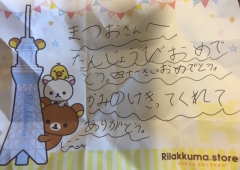 まつおさんへ
たんじょうびおめで
とう。四十一さいおめでとう。
かみのけきってくれて
ありがとう。
Rilakkuma store